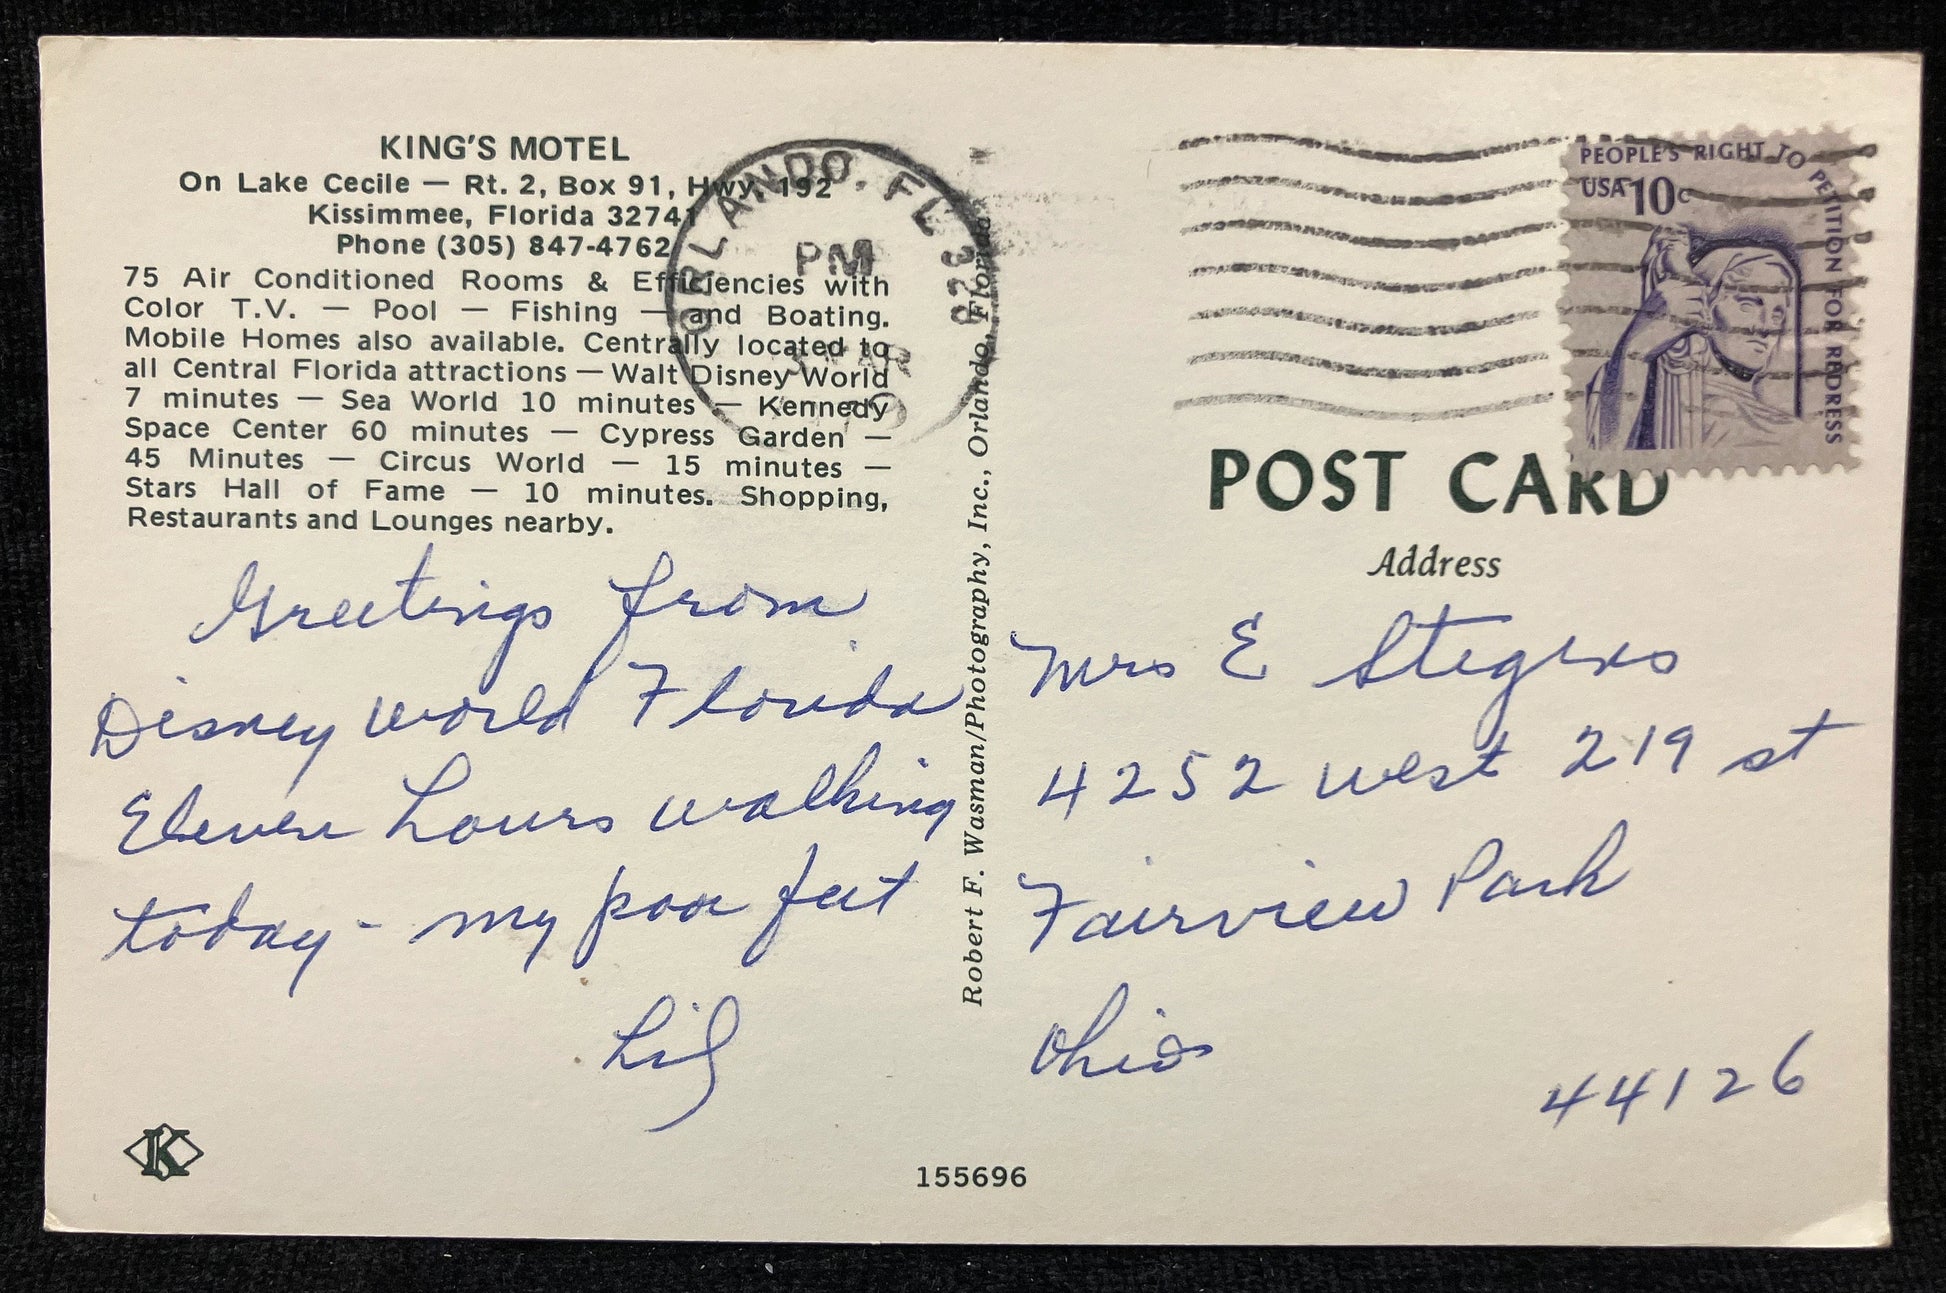 KING'S MOTEL
On Lake Cecile — Rt. 2, Box 91, Hwy. 192
Kissimmee, Florida 32741
Phone (305) 847-4762
75 Air Conditioned Rooms & Efficiencies with
Color T.V. — Pool — Fishing — and Boating.
Mobile Homes also available. Centrally located to
all Central Florida attractions — Walt Disney World
7 minutes — Sea World 10 minutes — Kennedy
Space Center 60 minutes — Cypress Garden —
45 Minutes — Circus World — 15 minutes —
Stars Hall of Fame — 10 minutes. Shopping,
Restaurants and Lounges nearby.
Greetings from
Disney World Florida
Eleven hours walking
today - my poor feet
Lil
K
155696
Robert F. Wasman/Photography, Inc., Orlando, Florida
ORLANDO, FL 328
PM
MAR
PEOPLE'S RIGHT TO PETITION FOR REDRESS
USA 10c
POST CARD
Address
Mrs E Stegers
4252 West 219 st
Fairview Park
Ohio
44126